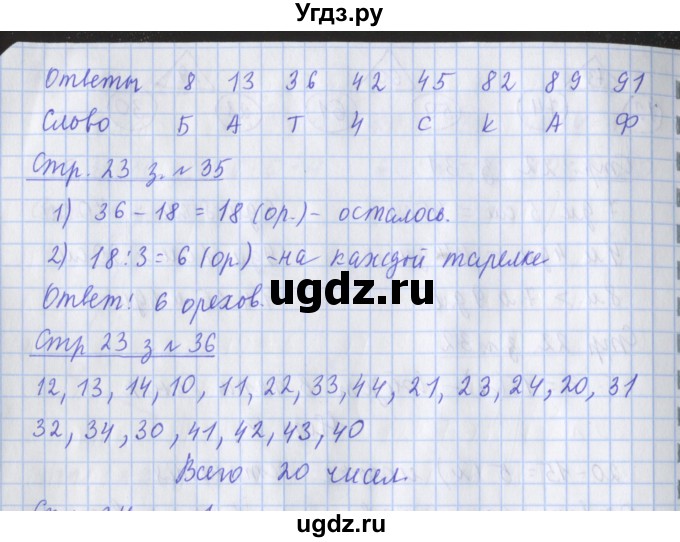 Угдз.ру
Ответы 8 13 36 42 45 82 89 91
Слово Б А Т Ч С К А Ф
Стр. 23 з. № 35
1) 36 - 18 = 18 (ор.) - осталось.
2) 18 : 3 = 6 (ор) - на каждой тарелке
Ответ: 6 орехов.
ugdz.ru
Стр 23 з № 36
12, 13, 14, 10, 11, 22, 33, 44, 21, 23, 24, 20, 31
32, 34, 30, 41, 42, 43, 40
Всего 20 чисел.
ugdz.ru